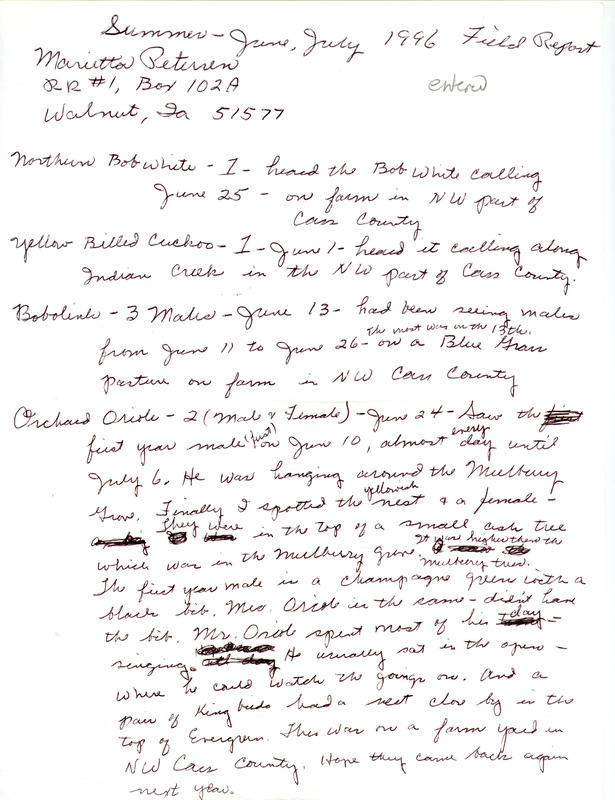 Summer - June, July 1996 Field Report
Marietta Petersen
RR #1, Box 102A
entered
Walnut, Ia 51577
Northern Bob White - 1 - heard the Bob White calling
June 25 - on farm in NW part of
Cass County
Yellow Billed Cuckoo - 1 - June 1 - heard it calling along
Indian Creek in the NW part of Cass County.
Bobolink - 3 Males - June 13 - had been seeing males
The most was on the 13th.
from June 11 to June 26 - on a Blue Grass
pasture on farm in NW Cass County
Orchard Oriole - 2 (Male & Female) - June 24 - Saw the
first year male (first) on June 10, almost every day until
July 6. He was hanging around the Mulberry
Grove. Finally I spotted the nest & a yellowish female -
They were in the top of a small ash tree
which was in the Mulberry grove. It was higher then the
Mulberry trees.
The first year male is a champagne green with a
black bib. Mrs. Oriole is the same - didn't have
the bib. Mr. Oriole spent most of his day -
singing. He usually sat in the open -
where he could watch the goings on. And a
pair of King birds had a nest close by in the
top of Evergreen. This was on a farm yard in
NW Cass County. Hope they came back again
next year.